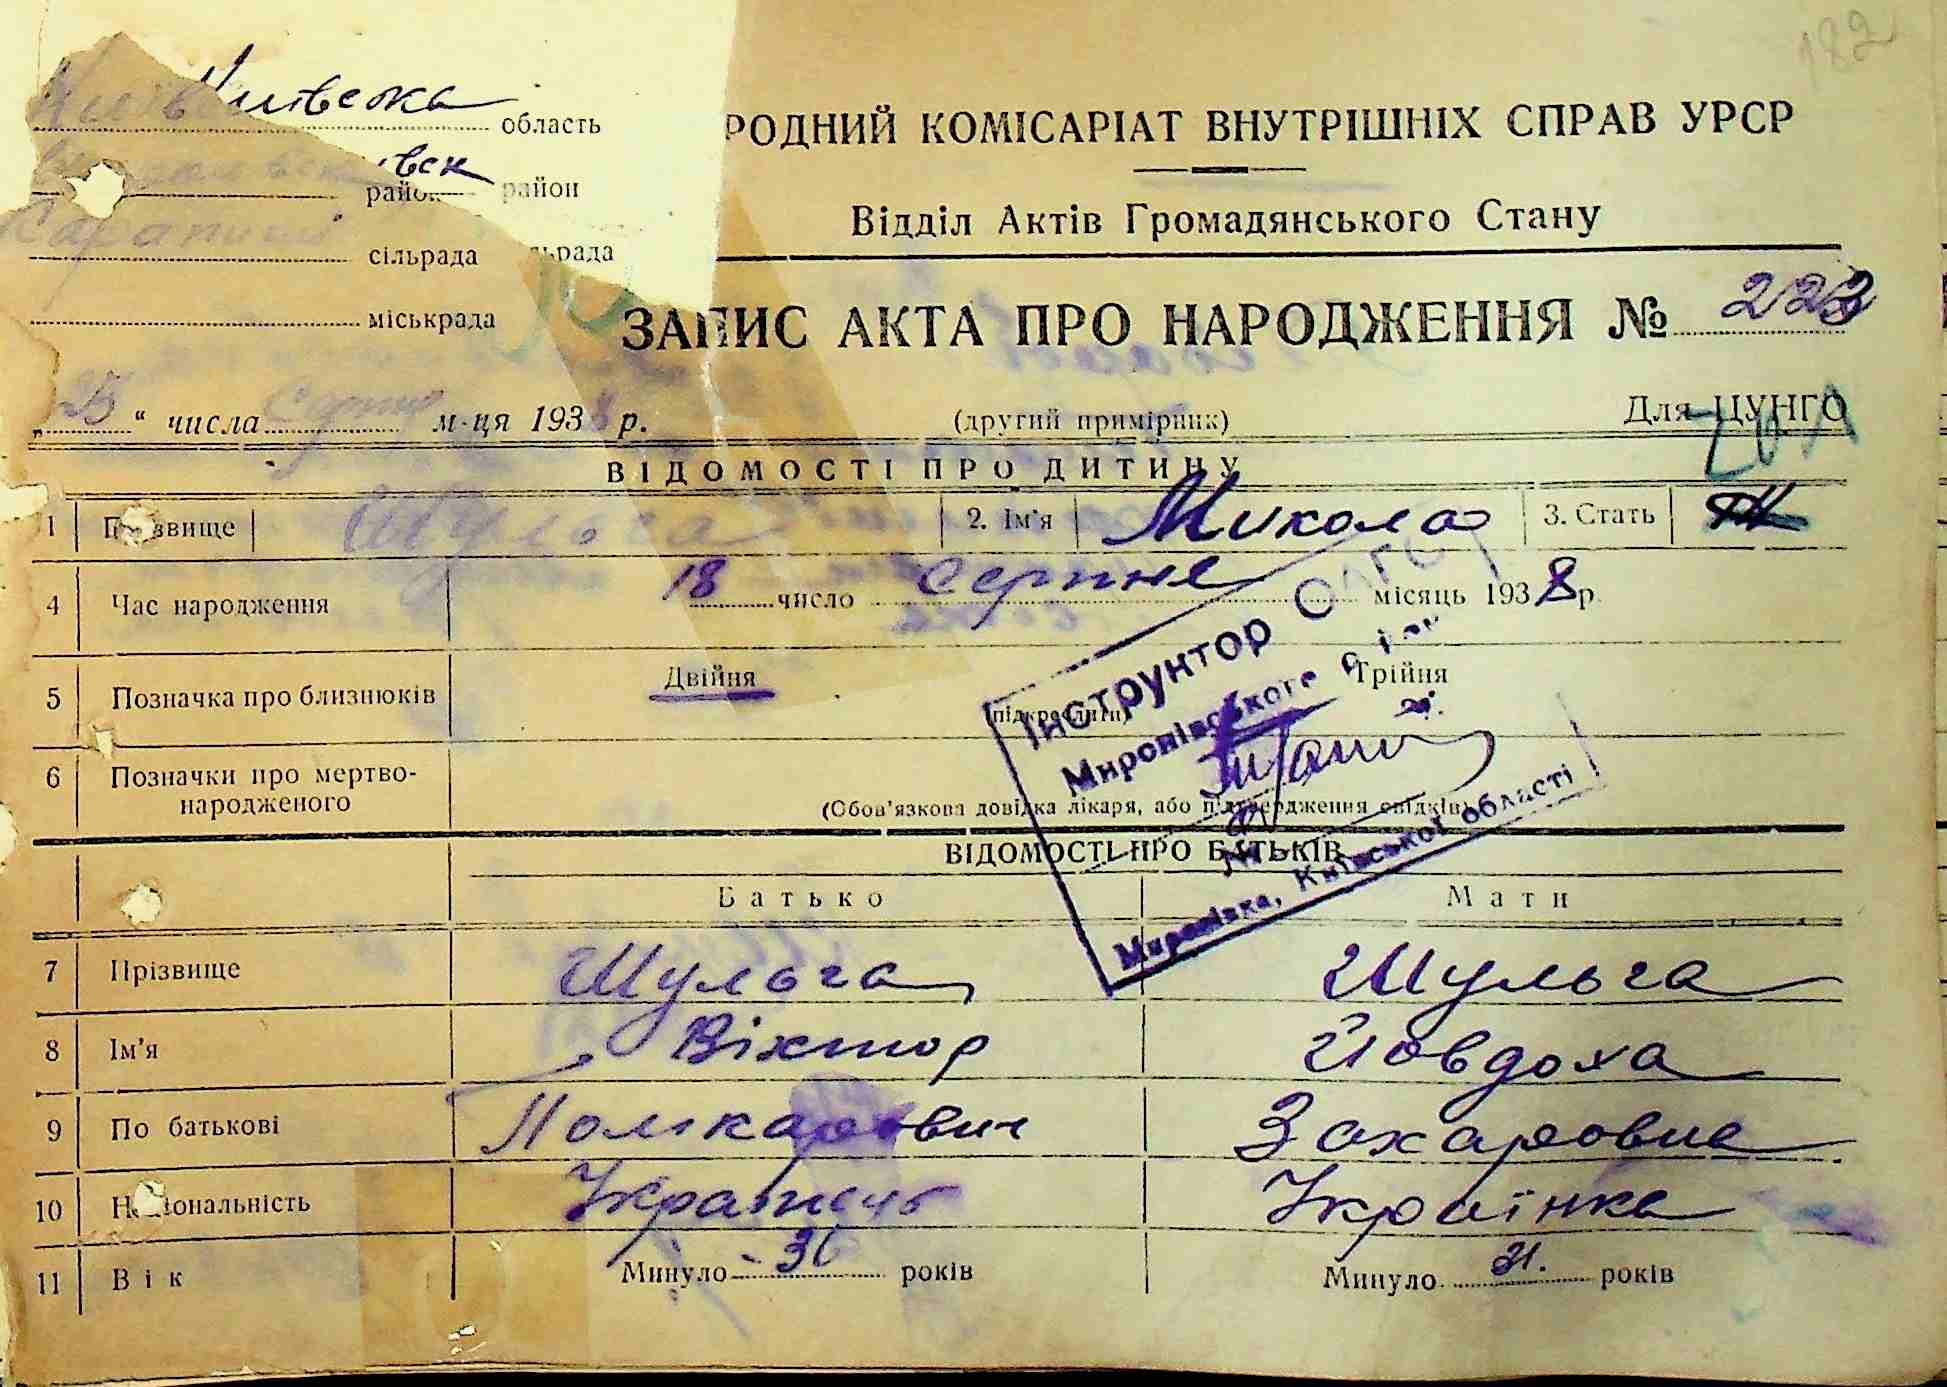 182
Київська область
район район
Карапиші сільрада
міськрада
РОДНИЙ КОМІСАРІАТ ВНУТРІШНІХ СПРАВ УРСР
Відділ Актів Громадянського Стану
ЗАПИС АКТА ПРО НАРОДЖЕННЯ № 223
„25“ числа серпня м-ця 1938 р.
(другий примірник)
Для ЦУНГО
ВІДОМОСТІ ПРО ДИТИНУ
1 Прізвище Шульга 2. Ім'я Микола 3. Стать
4 Час народження 18 число серпня місяць 1938 р.
5 Позначка про близнюків Двійня Трійня
(підкреслити)
6 Позначки про мертво-
народженого
(Обов'язкова довідка лікаря, або підтвердження свідків)
Інструктор
Миронівського
Миронівка, Київської області
ВІДОМОСТІ ПРО БАТЬКІВ
Батько Мати
7 Прізвище Шульга Шульга
8 Ім'я Віктор Йовдоха
9 По батькові Полікарпович Захаровна
10 Національність Українець Українка
11 Вік Минуло 36 років Минуло 31. років